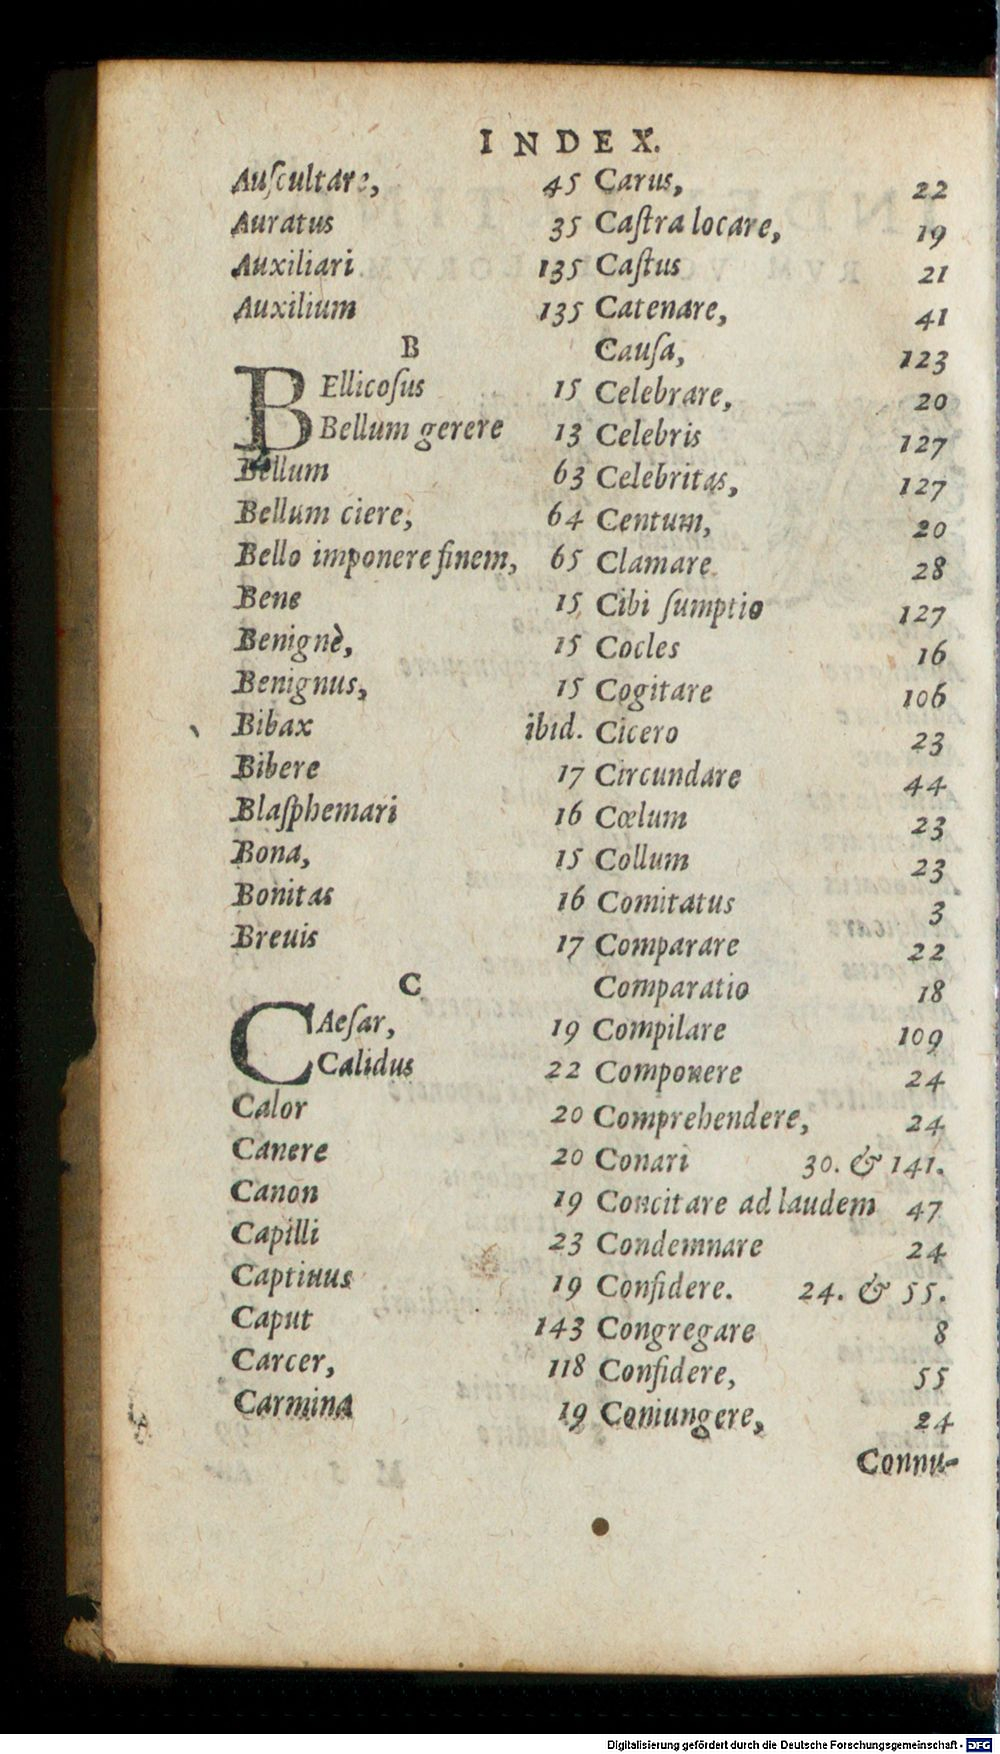 INDEX.
Auſcultare, 45
Auratus 35
Auxiliari 135
Auxilium 135
B
BEllicoſus 15
Bellum gerere 13
Bellum 63
Bellum ciere, 64
Bello imponere finem, 65
Bene 15
Benignè, 15
Benignus, 15
Bibax ibid.
Bibere 17
Blaſphemari 16
Bona, 15
Bonitas 16
Breuis 17
C
CAeſar, 19
Calidus 22
Calor 20
Canere 20
Canon 19
Capilli 23
Captiuus 19
Caput 143
Carcer, 118
Carmina 19
Carus, 22
Caſtra locare, 19
Caſtus 21
Catenare, 41
Cauſa, 123
Celebrare, 20
Celebris 127
Celebritas, 127
Centum, 20
Clamare 28
Cibi ſumptio 127
Cocles 16
Cogitare 106
Cicero 23
Circundare 44
Cœlum 23
Collum 23
Comitatus 3
Comparare 22
Comparatio 18
Compilare 109
Componere 24
Comprehendere, 24
Conari 30. & 141.
Concitare ad laudem 47
Condemnare 24
Confidere. 24. & 55.
Congregare 8
Confidere, 55
Coniungere, 24
Connu-
Digitalisierung gefördert durch die Deutsche Forschungsgemeinschaft - DFG